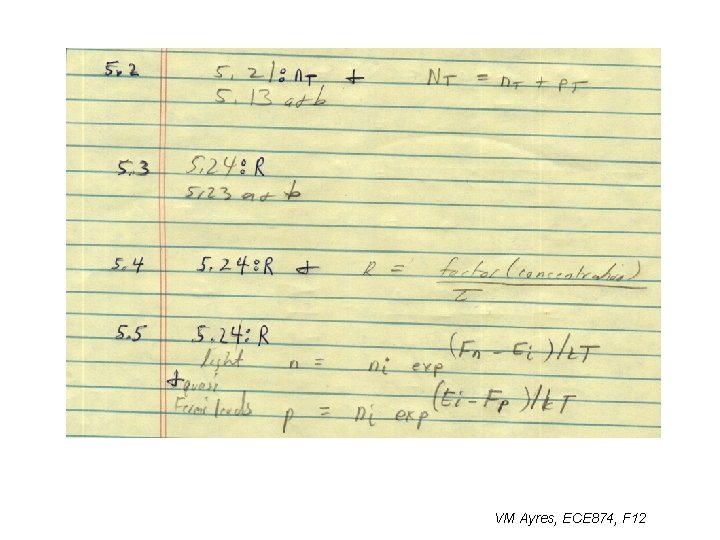 5.2 5.21: nT + NT = nT + pT
5.13 a+b
5.3 5.24: R
5.23 a+b
5.4 5.24: R + R = factor (concentration) / τ
5.5 5.24: R
light n = ni exp (Fn - Ei)/kT
+ quasi
Fermi levels p = ni exp (Ei - Fp)/kT
VM Ayres, ECE 874, F12